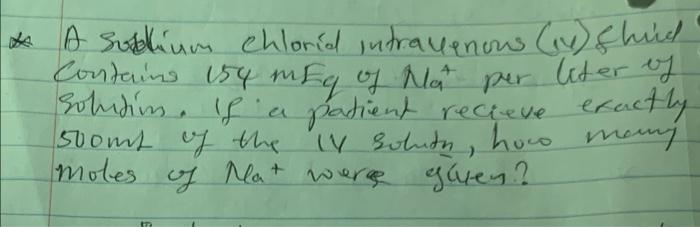 * A Sodium chlorid intravenous (iv) fluid
Contains 154 mEq of Na+ per liter of
Solution. If a patient recieve exactly
500mL of the IV Solutn, how many
moles of Na+ were given?